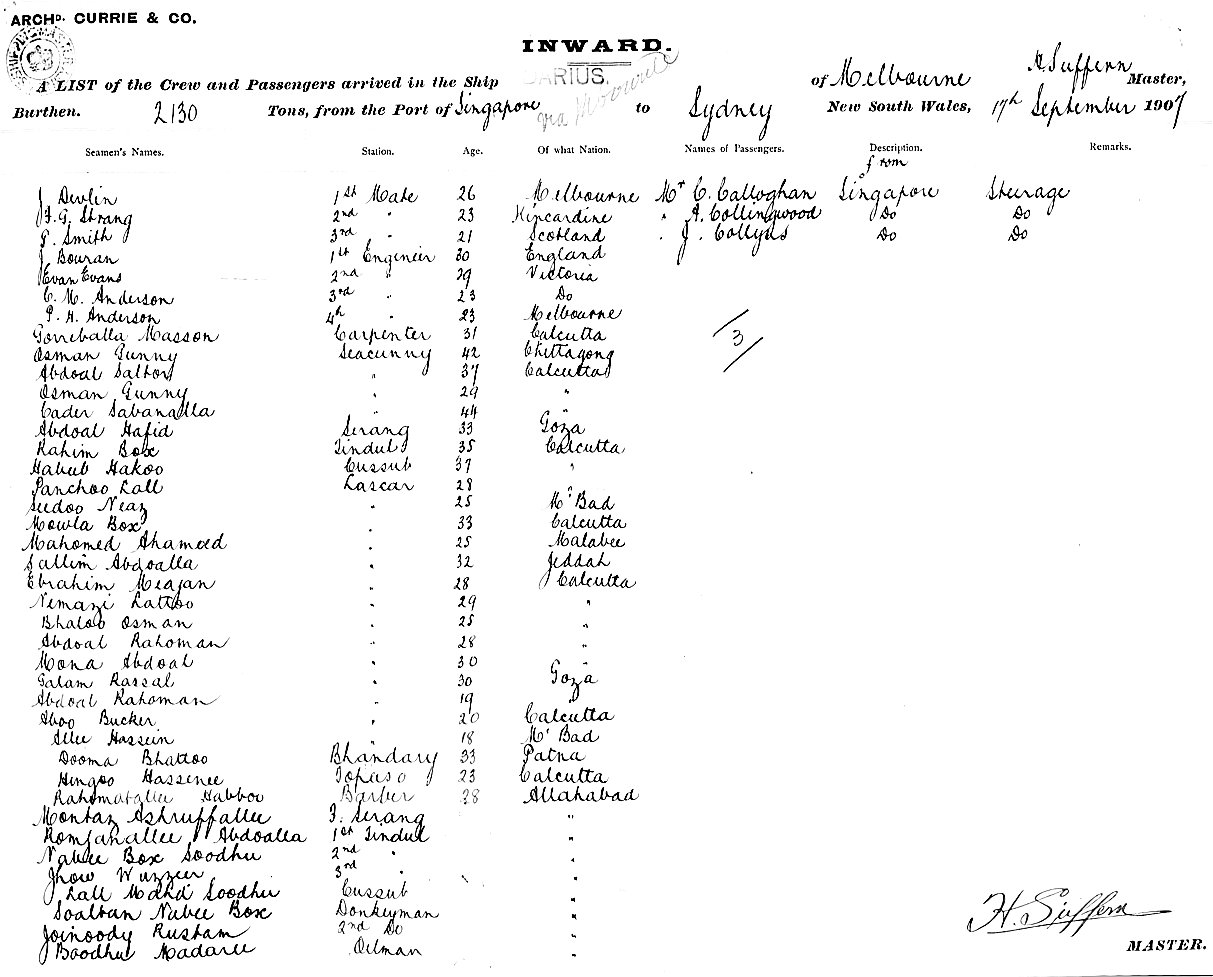 ARCHD. CURRIE & CO.
INWARD.
A LIST of the Crew and Passengers arrived in the Ship DARIUS. of Melbourne H. Suffern Master,
Burthen. 2130 Tons, from the Port of Singapore via to Sydney New South Wales, 17th September 1907
Seamen's Names. Station. Age. Of what Nation. Names of Passengers. Description. Remarks.
from
J. Devlin 1st Mate 26 Melbourne Mr C. Calloghan Singapore Steerage
F. G. Strang 2nd " 23 Kincardine " A. Collingwood Do Do
P. Smith 3rd " 21 Scotland " J. Do Do
J. Bouran 1st Engineer 30 England
Evan Evans 2nd " 29 Victoria
C. M. Anderson 3rd " 23 Do
P. H. Anderson 4th " 23 Melbourne
Gorreballa Masson Carpenter 31 Calcutta
3
Osman Gunny Seacunny 42 Chittagong
Abdoal " 37 Calcutta
Osman Gunny " 29 "
Cader Sabanalla " 44 "
Abdoal Hafid Serang 33 Goza
Rahim Box Tindul 35 Calcutta
Habub Hakoo Cussub 37 "
Panchoo Lall Lascar 28
Seedoo Neaz " 25 M'Bad
Mowla Box " 33 Calcutta
Mahomed Ahamed " 25 Malabee
Sallim Abdoalla " 32 Jeddah
Ebrahim Meajan " 28 Calcutta
Nemazi Lattoo " 29 "
Bhaloo Osman " 25 "
Abdoal Rahoman " 28 "
Mona Abdoal " 30 "
Golam Rassal " 30 Goza
Abdoal Rahoman " 19 "
Aboo Bucker " 20 Calcutta
Allee Hassein " 18 M'Bad
Dooma Bhattoo Bhandary 33 Patna
Hingoo Hassenee Topaso 23 Calcutta
Rahomatallee Habboo Barber 28 Allahabad
Montaz Ashruffallee F. Serang "
Romjanallee Abdoalla 1st Tindul "
Nabee Box Soodhu 2nd " "
Jhow Wuzzeer 3rd " "
Lall Mahd Soodhu Cussub "
Soaltan Nabee Box Donkeyman "
Joinoody Rustam 2nd Do "
Boodhu Madaree Oilman "
H. Suffern
MASTER.